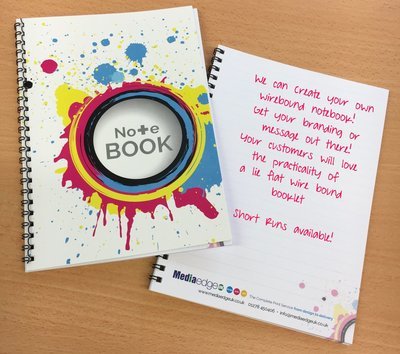 Note
BOOK
We can create your own
wirebound notebook!
Get your branding or
message out there!
Your customers will love
the practicality of
a lie flat wire bound
booklet
Short Runs available!
Mediaedge
The Complete Print Service from design to delivery
www.mediaedgeuk.co.uk
info@mediaedgeuk.co.uk